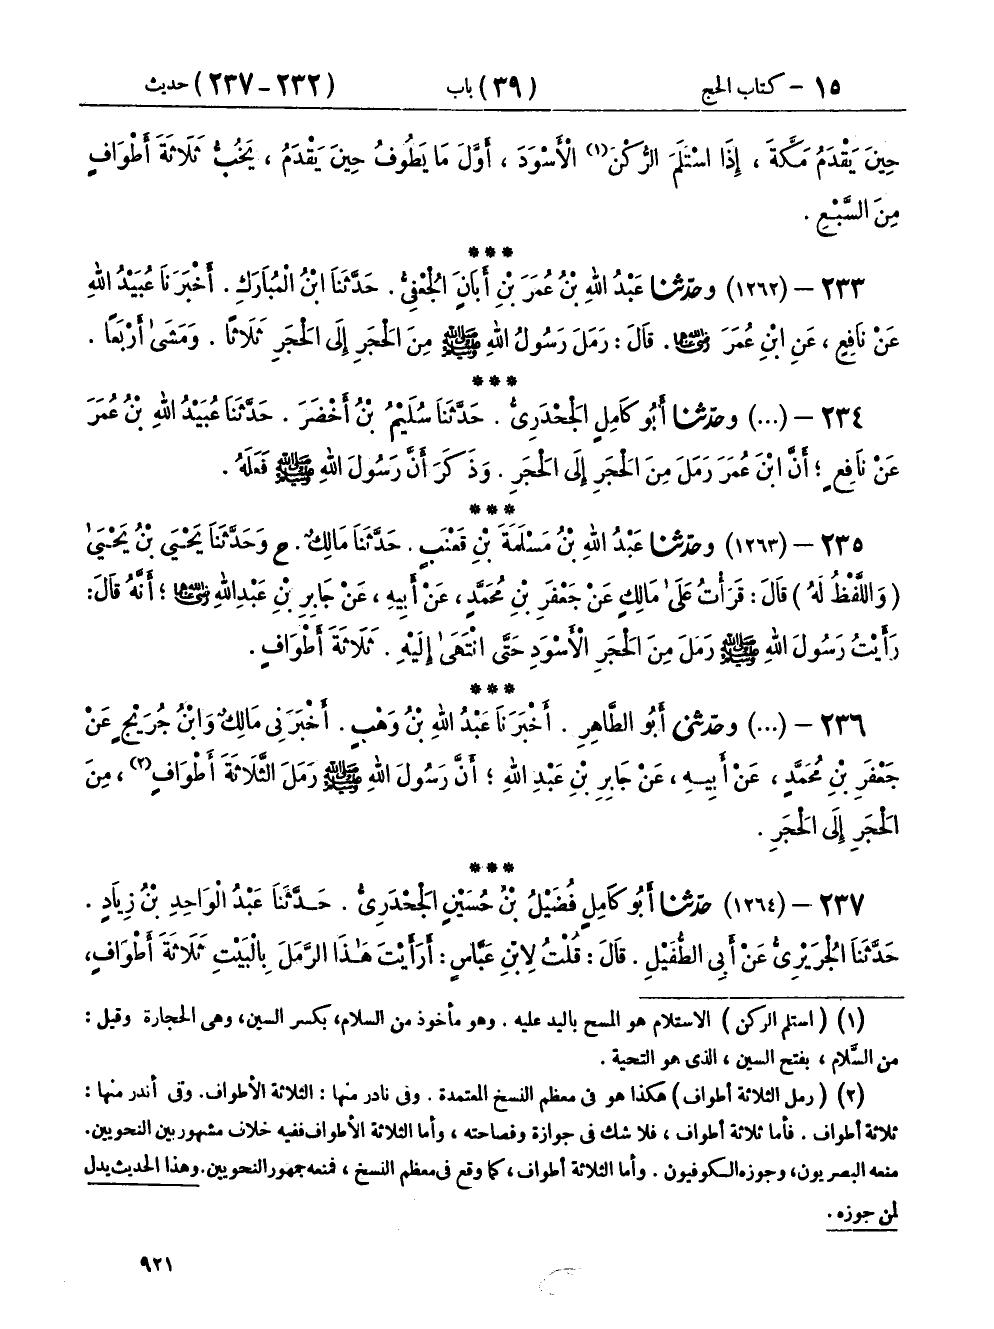 ١٥ - كتاب الحج (٣٩) باب (٢٣٢-٢٣٧) حديث
حِينَ يَقْدَمُ مَكَّةَ ، إِذَا اسْتَلَمَ الرُّكْنَ(١) الْأَسْوَدَ ، أَوَّلَ مَا يَطُوفُ حِينَ يَقْدَمُ ، يَخُبُّ ثَلَاثَةَ أَطْوَافٍ
مِنَ السَّبْعِ .
***
٢٣٣ - (١٢٦٢) وحدّثنا عَبْدُ اللهِ بْنُ عُمَرَ بْنِ أَبَانَ الْجُعْفِيُّ . حَدَّثَنَا ابْنُ الْمُبَارَكِ . أَخْبَرَنَا عُبَيْدُ اللهِ
عَنْ نَافِعٍ ، عَنِ ابْنِ عُمَرَ رضي الله عنهما . قَالَ : رَمَلَ رَسُولُ اللهِ ﷺ مِنَ الْحَجَرِ إِلَى الْحَجَرِ ثَلَاثًا . وَمَشَىٰ أَرْبَعًا .
***
٢٣٤ - (...) وحدّثنا أَبُو كَامِلٍ الْجَحْدَرِيُّ . حَدَّثَنَا سُلَيْمُ بْنُ أَخْضَرَ . حَدَّثَنَا عُبَيْدُ اللهِ بْنُ عُمَرَ
عَنْ نَافِعٍ ؛ أَنَّ ابْنَ عُمَرَ رَمَلَ مِنَ الْحَجَرِ إِلَى الْحَجَرِ . وَذَكَرَ أَنَّ رَسُولَ اللهِ ﷺ فَعَلَهُ .
***
٢٣٥ - (١٢٦٣) وحدّثنا عَبْدُ اللهِ بْنُ مَسْلَمَةَ بْنِ قَعْنَبٍ . حَدَّثَنَا مَالِكٌ . ح وَحَدَّثَنَا يَحْيَى بْنُ يَحْيَىٰ
( وَاللَّفْظُ لَهُ ) قَالَ : قَرَأْتُ عَلَىٰ مَالِكٍ عَنْ جَعْفَرِ بْنِ مُحَمَّدٍ ، عَنْ أَبِيهِ ، عَنْ جَابِرِ بْنِ عَبْدِ اللهِ رضي الله عنهما ؛ أَنَّهُ قَالَ :
رَأَيْتُ رَسُولَ اللهِ ﷺ رَمَلَ مِنَ الْحَجَرِ الْأَسْوَدِ حَتَّى انْتَهَىٰ إِلَيْهِ . ثَلَاثَةَ أَطْوَافٍ .
***
٢٣٦ - (...) وحدّثني أَبُو الطَّاهِرِ . أَخْبَرَنَا عَبْدُ اللهِ بْنُ وَهْبٍ . أَخْبَرَنِي مَالِكٌ وَابْنُ جُرَيْجٍ عَنْ
جَعْفَرِ بْنِ مُحَمَّدٍ ، عَنْ أَبِيهِ ، عَنْ جَابِرِ بْنِ عَبْدِ اللهِ ؛ أَنَّ رَسُولَ اللهِ ﷺ رَمَلَ الثَّلَاثَةَ أَطْوَافٍ(٢) ، مِنَ
الْحَجَرِ إِلَى الْحَجَرِ .
***
٢٣٧ - (١٢٦٤) حدّثنا أَبُو كَامِلٍ فُضَيْلُ بْنُ حُسَيْنٍ الْجَحْدَرِيُّ . حَدَّثَنَا عَبْدُ الْوَاحِدِ بْنُ زِيَادٍ .
حَدَّثَنَا الْجُرَيْرِيُّ عَنْ أَبِي الطُّفَيْلِ . قَالَ : قُلْتُ لِابْنِ عَبَّاسٍ : أَرَأَيْتَ هَٰذَا الرَّمَلَ بِالْبَيْتِ ثَلَاثَةَ أَطْوَافٍ ،
(١) ( استلم الركن ) الاستلام هو المسح باليد عليه . وهو مأخوذ من السلام، بكسر السين، وهى الحجارة وقيل :
من السَّلام ، بفتح السين ، الذى هو التحية .
(٢) ( رمل الثلاثة أطواف ) هكذا هو فى معظم النسخ المعتمدة . وفى نادر منها : الثلاثة الأطواف. وفى أندر منها :
ثلاثة أطواف . فأما ثلاثة أطواف ، فلا شك فى جوازة وفصاحته ، وأما الثلاثة الأطواف ففيه خلاف مشهور بين النحويين.
منعه البصريون، وجوزه الكوفيون . وأما الثلاثة أطواف، كما وقع فى معظم النسخ ، فمنعه جمهور النحويين. وهذا الحديث يدل
لمن جوزه .
٩٢١